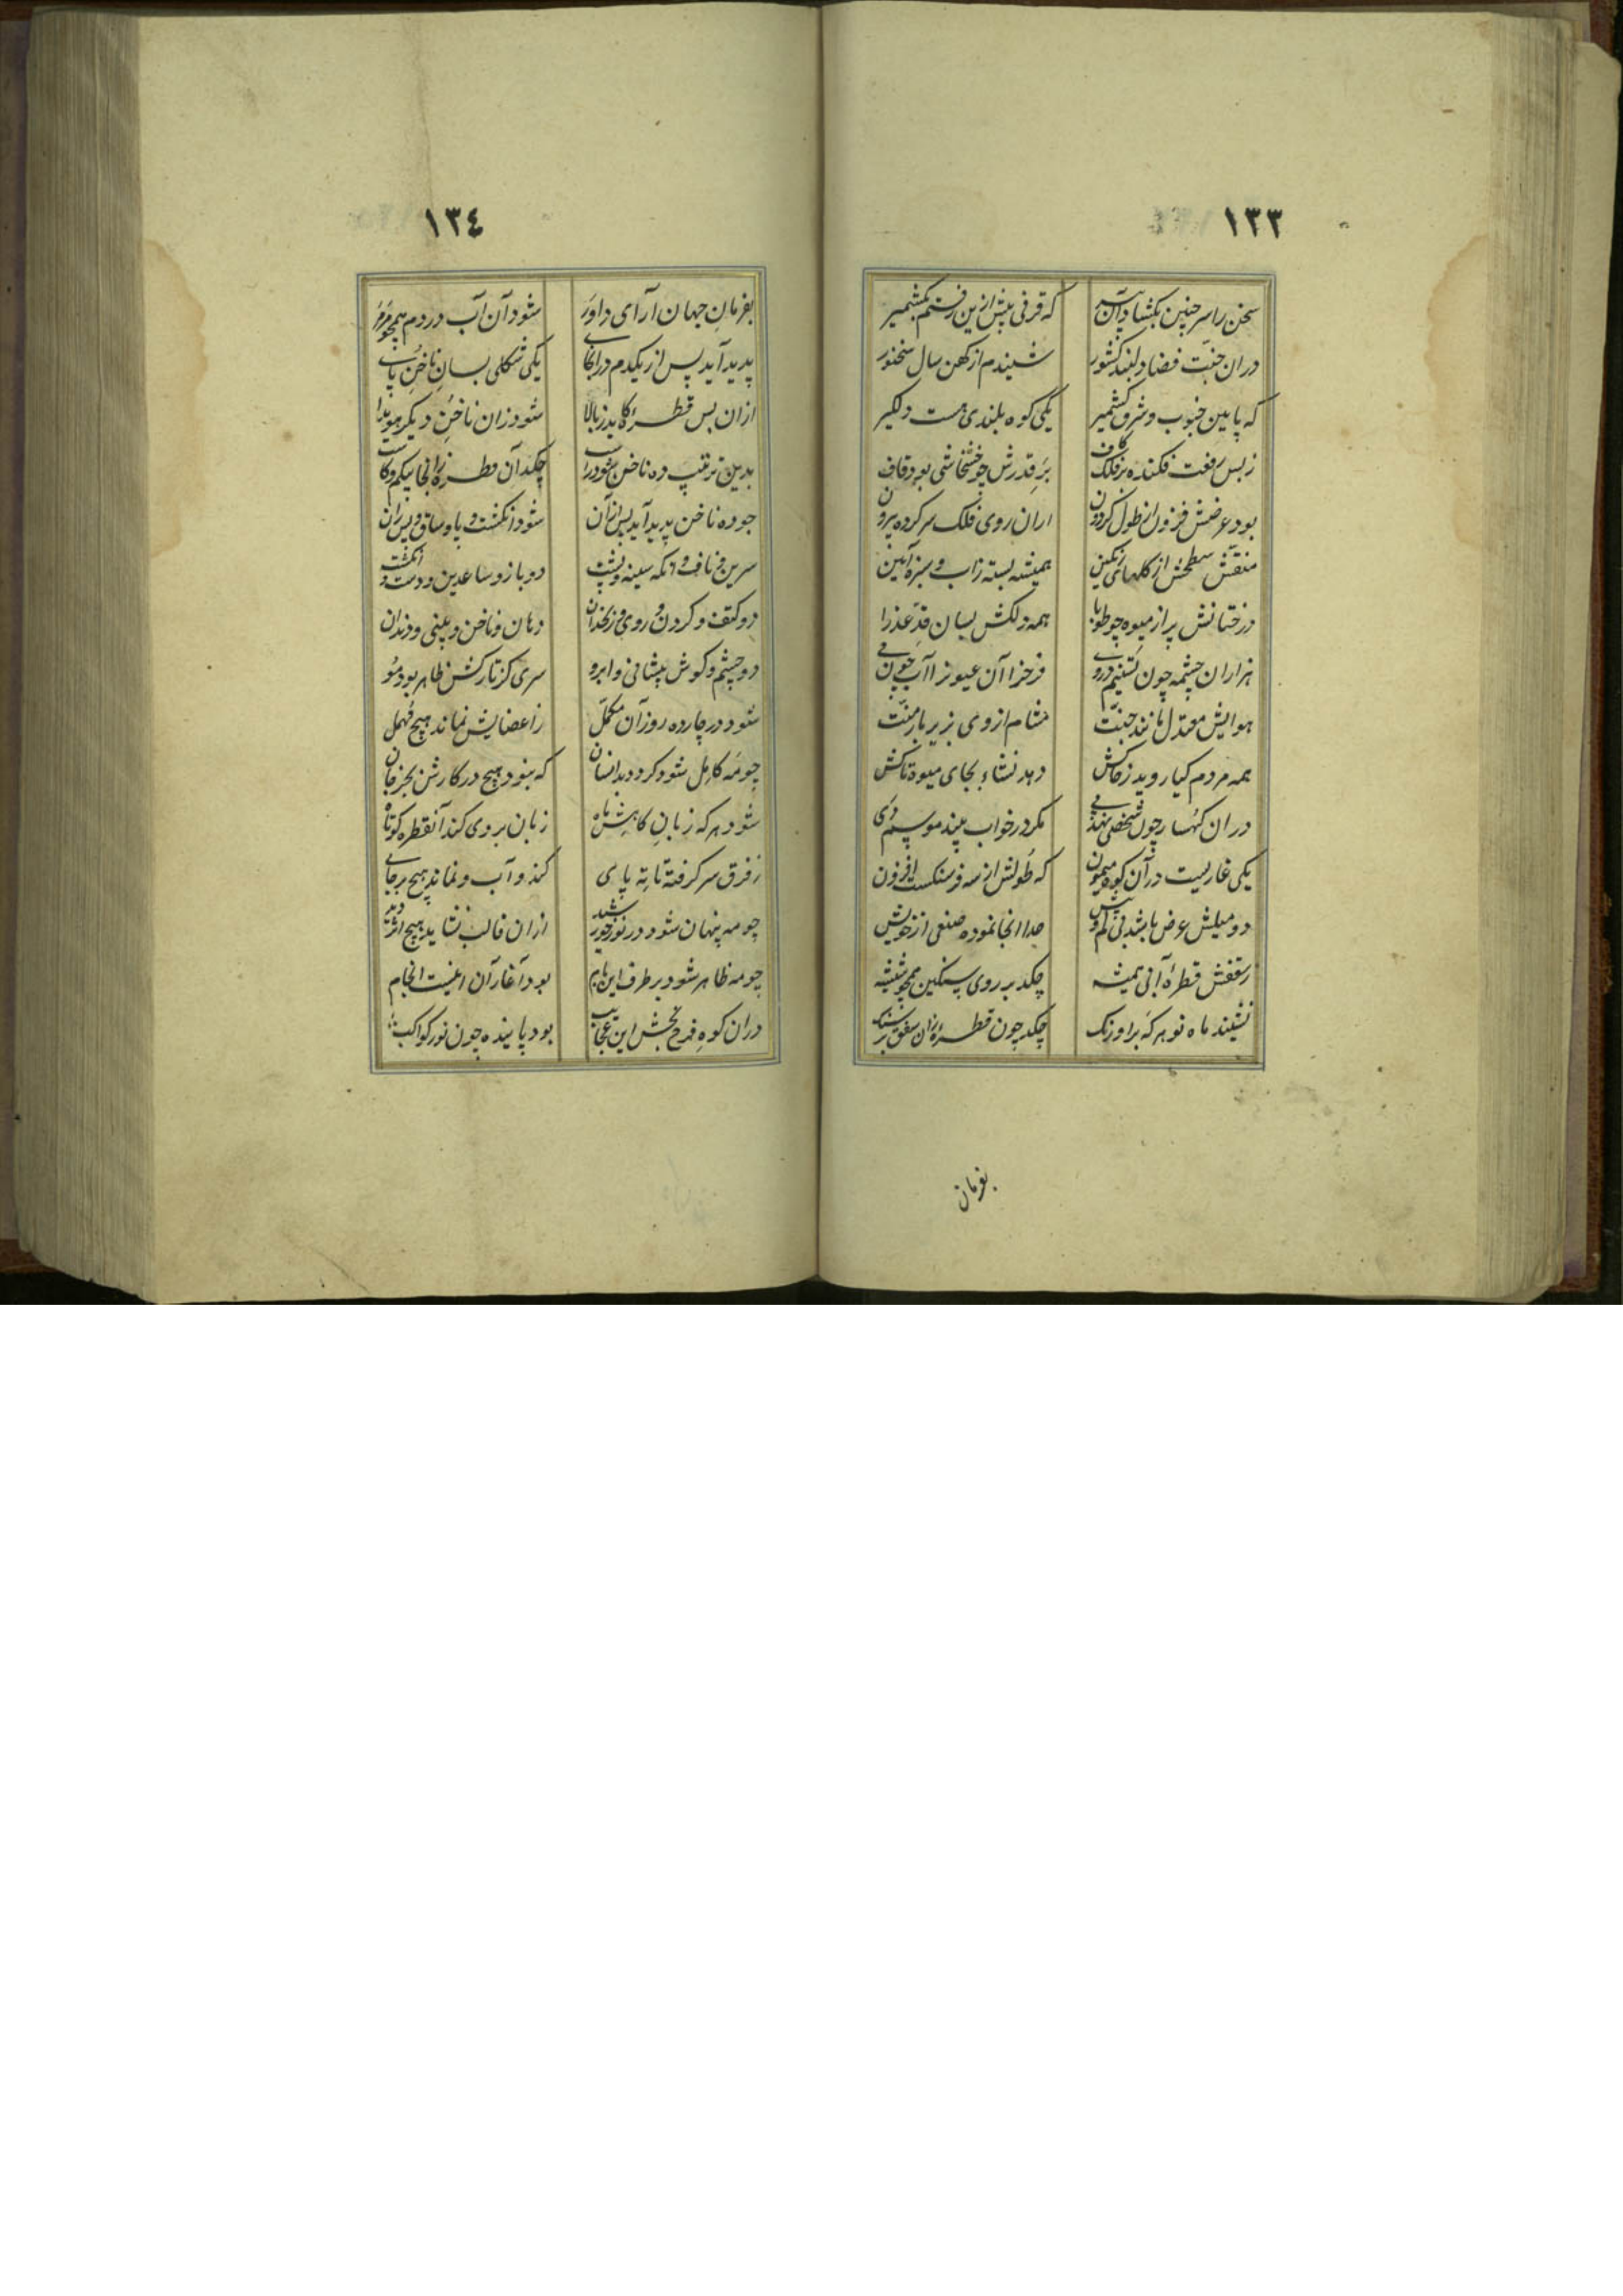 ١٣٣
سخن را سر چنین بکشاد آن پیر که قرنی پیش ازین رفتم بکشمیر
دران جنت فضا دلبند کشور شنیدم از کهن سال سخنور
که پایین جنوب و شرق کشمیر یکی کوه بلندی هست دلکیر
ز بس رفعت فکنده بر فلک کاف بر قدرش چو خشخاشی بود قاف
بود عرضش فزون از طول کردون ازان روی فلک سر کرده بیرون
منقش سطحش از کلهای رنکین همیشه بسته زاب و سبزه آیین
درختانش پر از میوه چو طوبا همه دلکش بسان قد عذرا
هزاران چشمه چون تسنیم در وی
هوایش معتدل مانند جنت مشام از وی بزیر بار منت
همه مردم کیا روید ز خاکش دهد نشاء بجای میوه تاکش
دران کهسار چون شخصی نهد پی مکر در خواب بیند موسم دی
یکی غاریست در آن کوه میمون که طولش از سه فرسنکست افزون
دو میلش عرض باشد بی کم و بیش خدا انجا نموده صنعی از خویش
ز سقفش قطرهٔ آبی همیشه چکد بر روی سنکین همچو شیشه
نشیند ماه نو هر که بر اورنک چکد چون قطرهٔ زان سقف بر سنک
بفرمان
١٣٤
بفرمان جهان آرای داور شود آن آب در دم همچو مرمر
پدید آید پس از یکدم در انجای یکی شکلی بسان ناخن پای
ازان پس قطرهٔ کاید ز بالا شود زان ناخن دیکر هویدا
بدین ترتیب ده ناخن شود راست چکد آن قطره زانجا بیکم و کاست
چو ده ناخن پدید آید پس از آن شود انکشت و پا و ساق و پس ران
سرین و ناف و انکه سینه و پشت دو بازو ساعدین و دست و انکشت
دو کتف و کردن و روی و زنخدان دهان و ناخن و بینی و دندان
دو چشم و کوش پیشانی و ابرو سری کز تارکش ظاهر بود مو
شود در چارده روز آن مکمل ز اعضایش نماند هیچ مهمل
چو مه کامل شود کردد بدانسان که نبود هیچ در کارش بجز جان
شود هر که زبان کاهش ماه زبان بر وی کند آنقطره کوتاه
ز فرق سر کرفته تا به پای کند و آب و نماند هیچ برجای
چو مه پنهان شود در نور خورشید ازان قالب نشاید هیچ اثر دید
چو مه ظاهر شود بر طرف این بام بود آغاز آن اینست انجام
دران کوه فرح بخش این عجایب بود پاینده چون نور کواکب